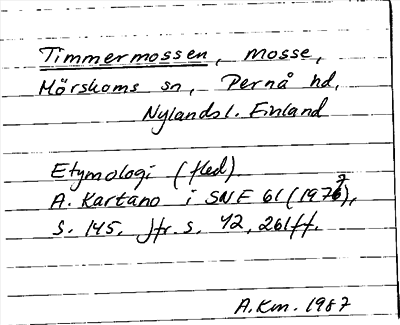 Timmermossen, mosse,
Mörskoms sn, Pernå hd,
Nylandsl. Finland
Etymologi (fled).
A. Kartano i SNF 61 (1976),
s. 145. Jfr. s. 42, 261ff.
A.Km. 1987